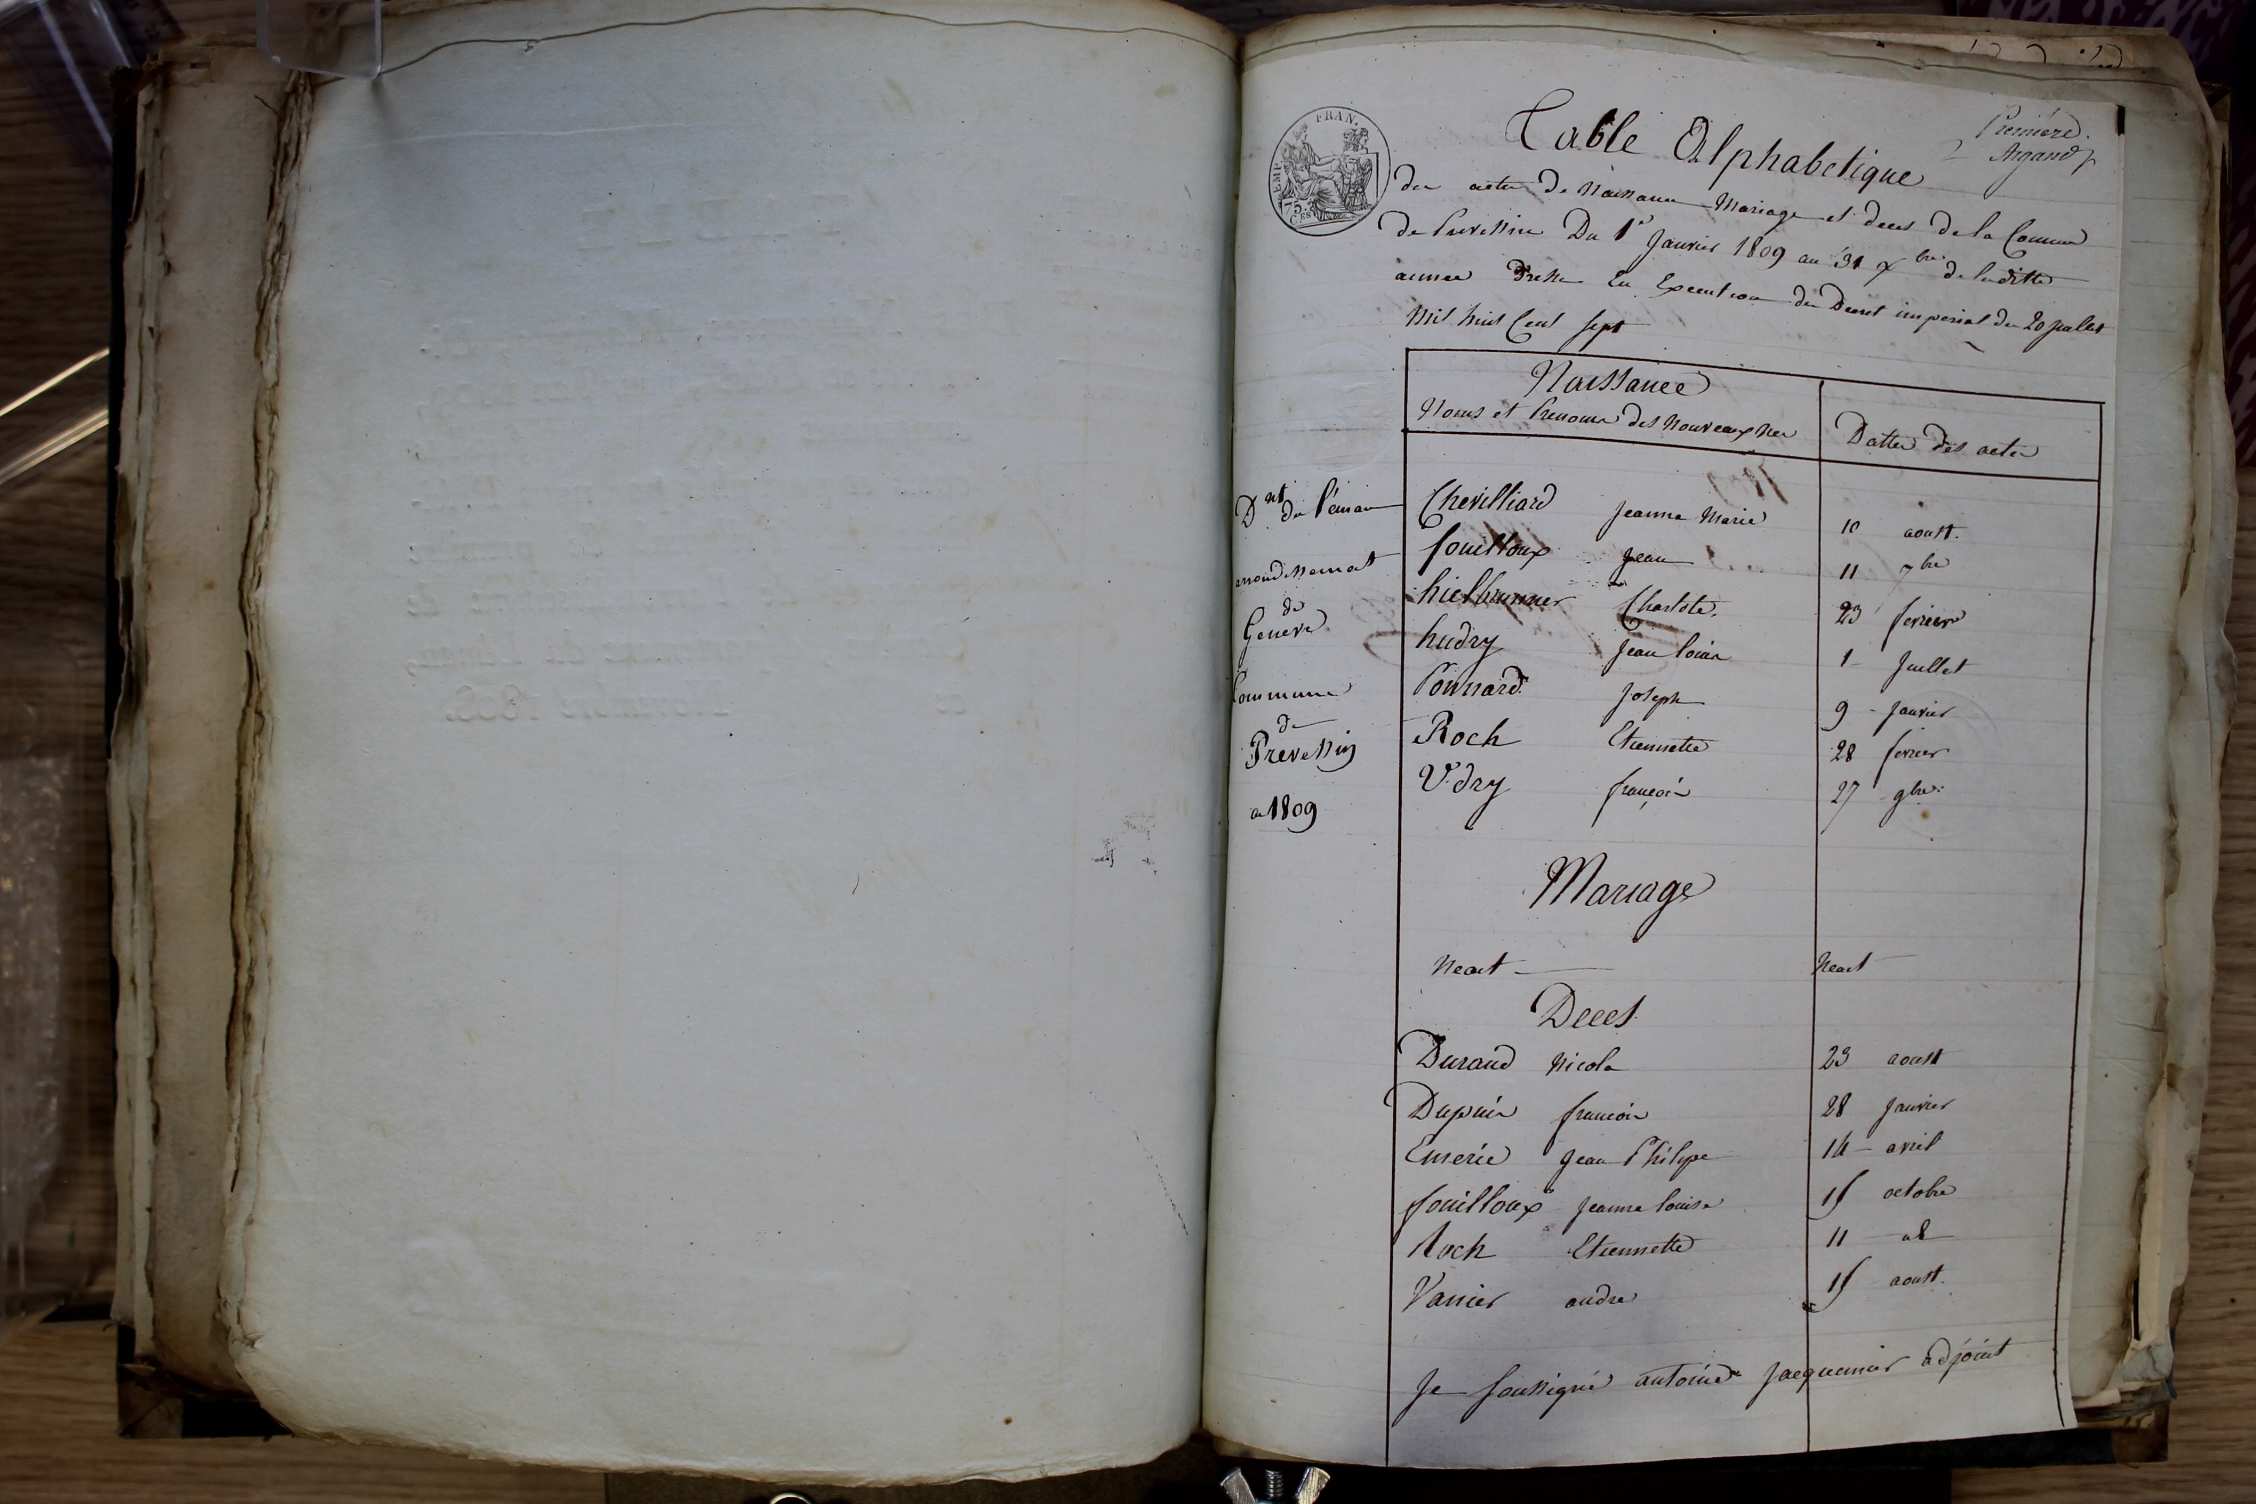 Première
Table Alphabetique
des actes de Naissance Mariage et deces de la Commune
de Prevessin Du 1er Janvier 1809 au 31 Xbre de laditte
annee Dressé En Execution du Decret imperial du 20 juillet
Mil huit Cent sept
EMP. FRAN.
75.
Naissance
Noms et Prenoms des Nouveaux Nés
Dattes des actes
Dnt du Léman
arrondissement
de
Geneve
Commune
de
Prevessin
an 1809
Chevilliard Jeanne Marie 10 aoust.
fouilloux Jean 11 7bre
Charlote 23 fevrier
hudry Jean louis 1 Juillet
Ponnard Joseph 9 Janvier
Roch Etiennette 28 fevrier
Vdry françois 27 9bre
Mariage
Neant Neant
Deces
Durand Nicolas 23 aoust
Dupuis francois 28 Janvier
Emerie Jean Philipe 14 avril
fouilloux Jeanne louise 15 octobre
Roch Etiennette 11
Varrier andre 15 aoust
Je soussigné antoine Jacquemier adjoint